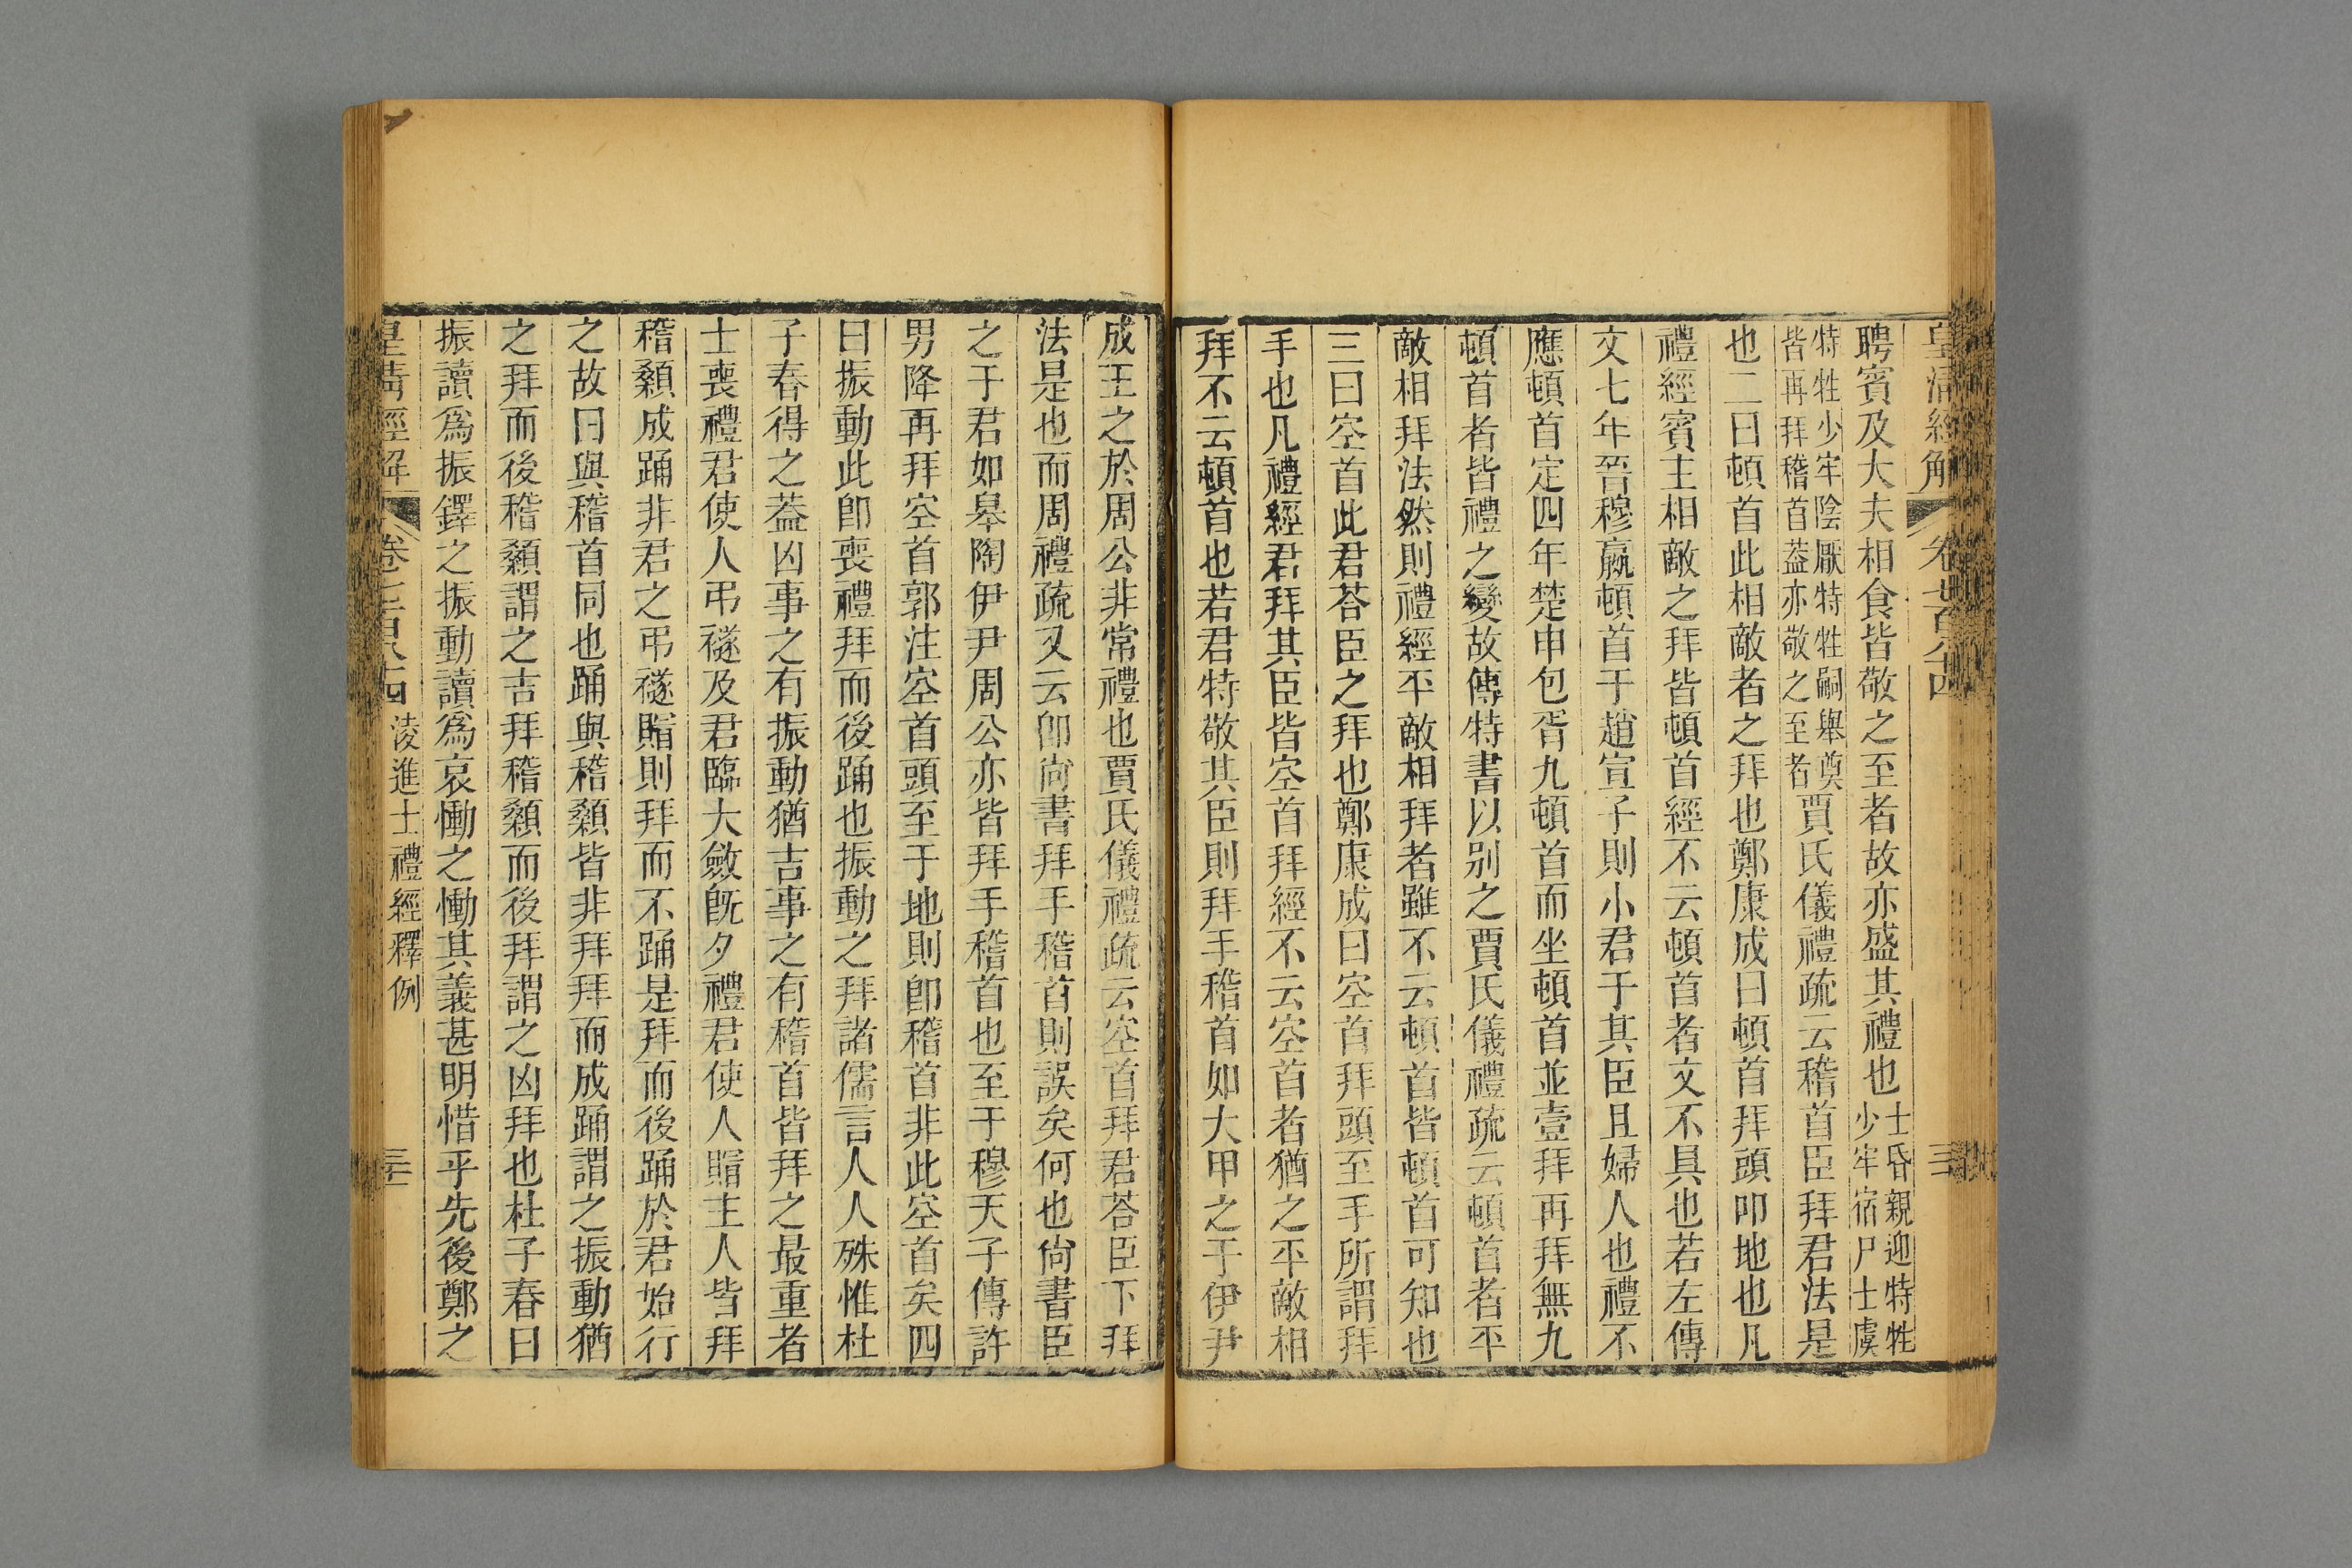 皇清經解 卷七百八十四
聘賓及大夫相食皆敬之至者故亦盛其禮也士昏親迎特牲少牢宿尸士虞
特牲少牢陰厭特牲嗣舉奠皆再拜稽首葢亦敬之至者賈氏儀禮疏云稽首臣拜君法是
也二曰頓首此相敵者之拜也鄭康成曰頓首拜頭叩地也凡
禮經賓主相敵之拜皆頓首經不云頓首者文不具也若左傳
文七年晉穆嬴頓首于趙宣子則小君于其臣且婦人也禮不
應頓首定四年楚申包胥九頓首而坐頓首並壹拜再拜無九
頓首者皆禮之變故傳特書以别之賈氏儀禮疏云頓首者平
敵相拜法然則禮經平敵相拜者雖不云頓首皆頓首可知也
三曰空首此君荅臣之拜也鄭康成曰空首拜頭至手所謂拜
手也凡禮經君拜其臣皆空首拜經不云空首者猶之平敵相
拜不云頓首也若君特敬其臣則拜手稽首如大甲之于伊尹
成王之於周公非常禮也賈氏儀禮疏云空首拜君荅臣下拜
法是也而周禮疏又云卽尙書拜手稽首則誤矣何也尙書臣
之于君如皋陶伊尹周公亦皆拜手稽首也至于穆天子傳許
男降再拜空首郭注空首頭至于地則卽稽首非此空首矣四
曰振動此卽喪禮拜而後踊也振動之拜諸儒言人人殊惟杜
子春得之葢凶事之有振動猶吉事之有稽首皆拜之最重者
士喪禮君使人弔襚及君臨大斂旣夕禮君使人賵主人皆拜
稽顙成踊非君之弔襚賵則拜而不踊是拜而後踊於君始行
之故曰與稽首同也踊與稽顙皆非拜拜而成踊謂之振動猶
之拜而後稽顙謂之吉拜稽顙而後拜謂之凶拜也杜子春曰
振讀爲振鐸之振動讀爲哀慟之慟其義甚明惜乎先後鄭之
皇清經解 卷七百八十四 淩進士禮經釋例